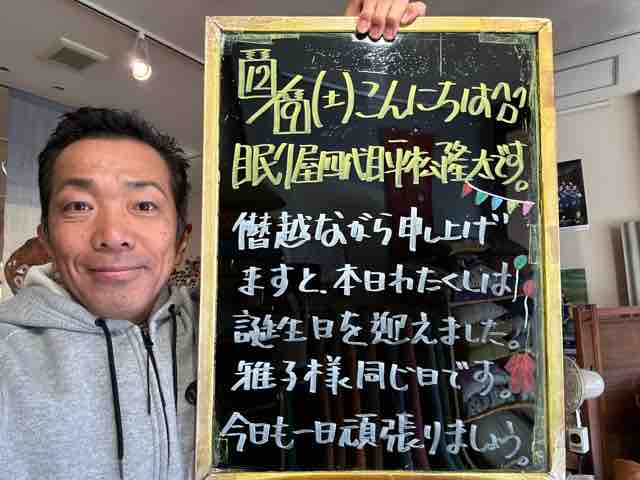 12/9(土)こんにちは^□^
眠り屋四代目平松隆太です。
僭越ながら申し上げ
ますと、本日わたくしは
誕生日を迎えました。
雅子様同じ日です。
今日も一日頑張りましょう。